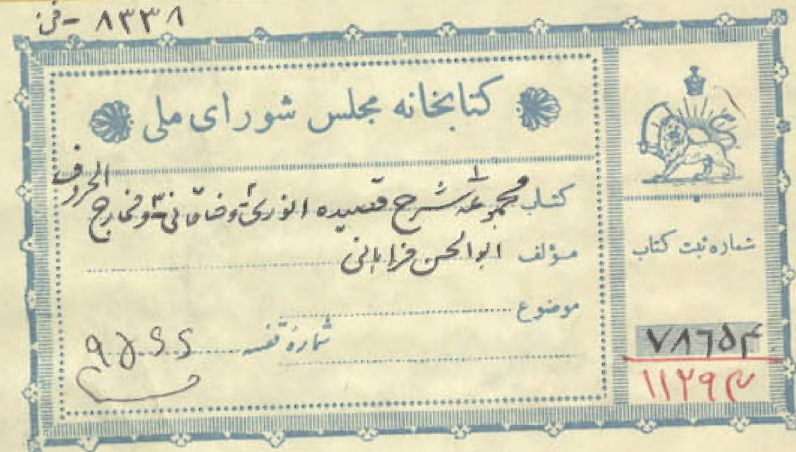 ۸۳۳۸ - فن
کتابخانه مجلس شورای ملی
کتاب مجموعه شرح قصیده انوری و خاقانی و مخارج الحروف
مؤلف ابوالحسن فراهانی
موضوع
شماره قفسه
شماره ثبت کتاب
۷۸۶۵۴
۱۱۲۹۴